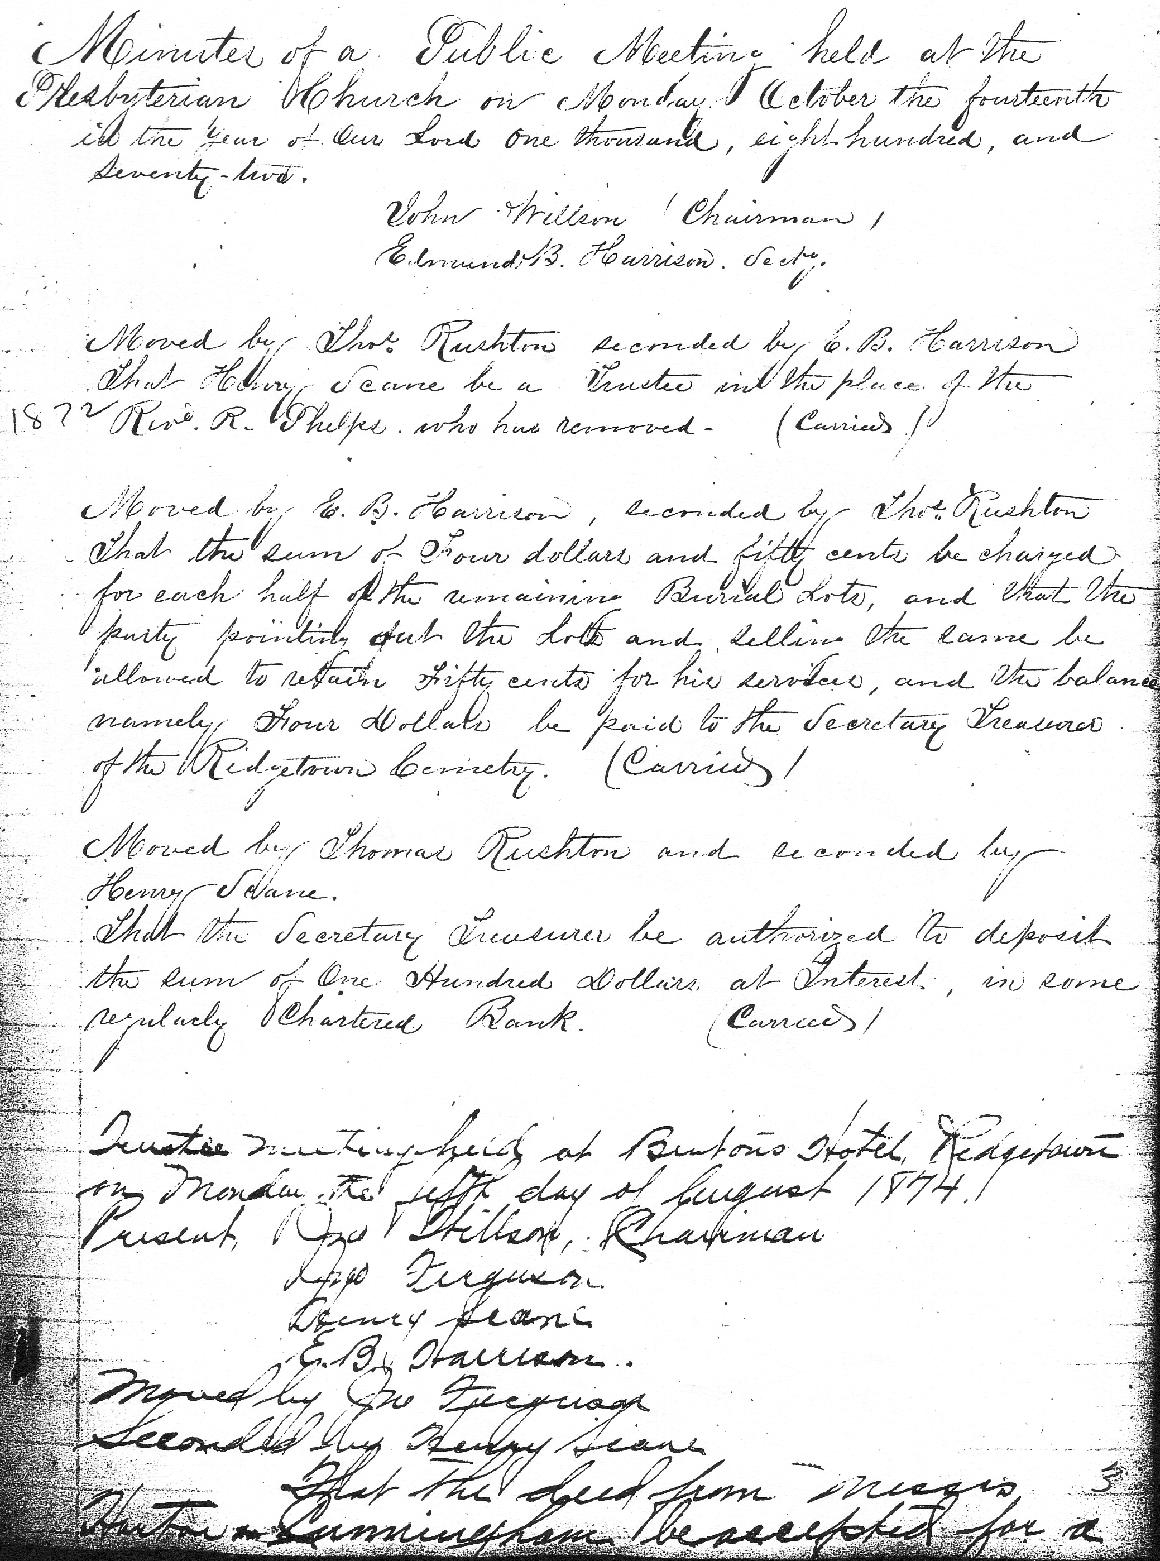 Minutes of a Public Meeting held at the
Presbyterian Church on Monday October the fourteenth
in the Year of Our Lord One thousand, eight hundred, and
seventy-two.
John Willson Chairman
Edmund B. Harrison. Secty.
Moved by Thos. Rushton seconded by E. B. Harrison
That Henry Scane be a Trustee in the place of the
1872 Revd. R. Phelps. who has removed - (Carried)
Moved by E. B. Harrison, seconded by Thos. Rushton
That the sum of Four dollars and fifty cents be charged
for each half of the remaining Burial Lots, and that the
party pointing out the Lots and selling the same be
allowed to retain Fifty cents for his services, and the balance
namely Four Dollars be paid to the Secretary Treasurer
of the Ridgetown Cemetry. (Carried)
Moved by Thomas Rushton and seconded by
Henry Scane.
That the Secretary Treasurer be authorized to deposit
the sum of One Hundred Dollars at Interest, in some
regularly Chartered Bank. (Carried)
Trustee meeting held at Hotel, Ridgetown
on Monday the fifth day of August 1874.
Present, Jno Willson, Chairman
Jno Ferguson
Henry Scane
E. B. Harrison.
Moved by Jno Ferguson
Seconded by Henry Scane
That the deed from Messrs 3
Cunningham be accepted for a